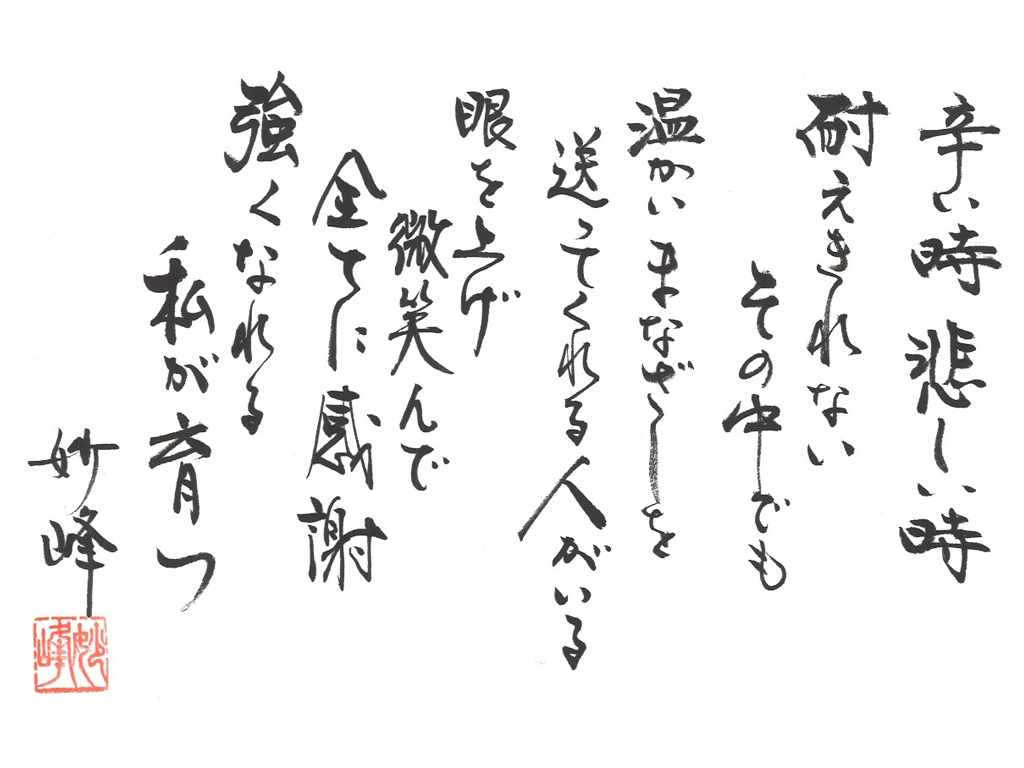 辛い時 悲しい時
耐えきれない
その中でも
温かい まなざしを
送ってくれる人がいる
眼を上げ
微笑んで
全てに感謝
強くなれる
私が育つ
妙峰
妙峰